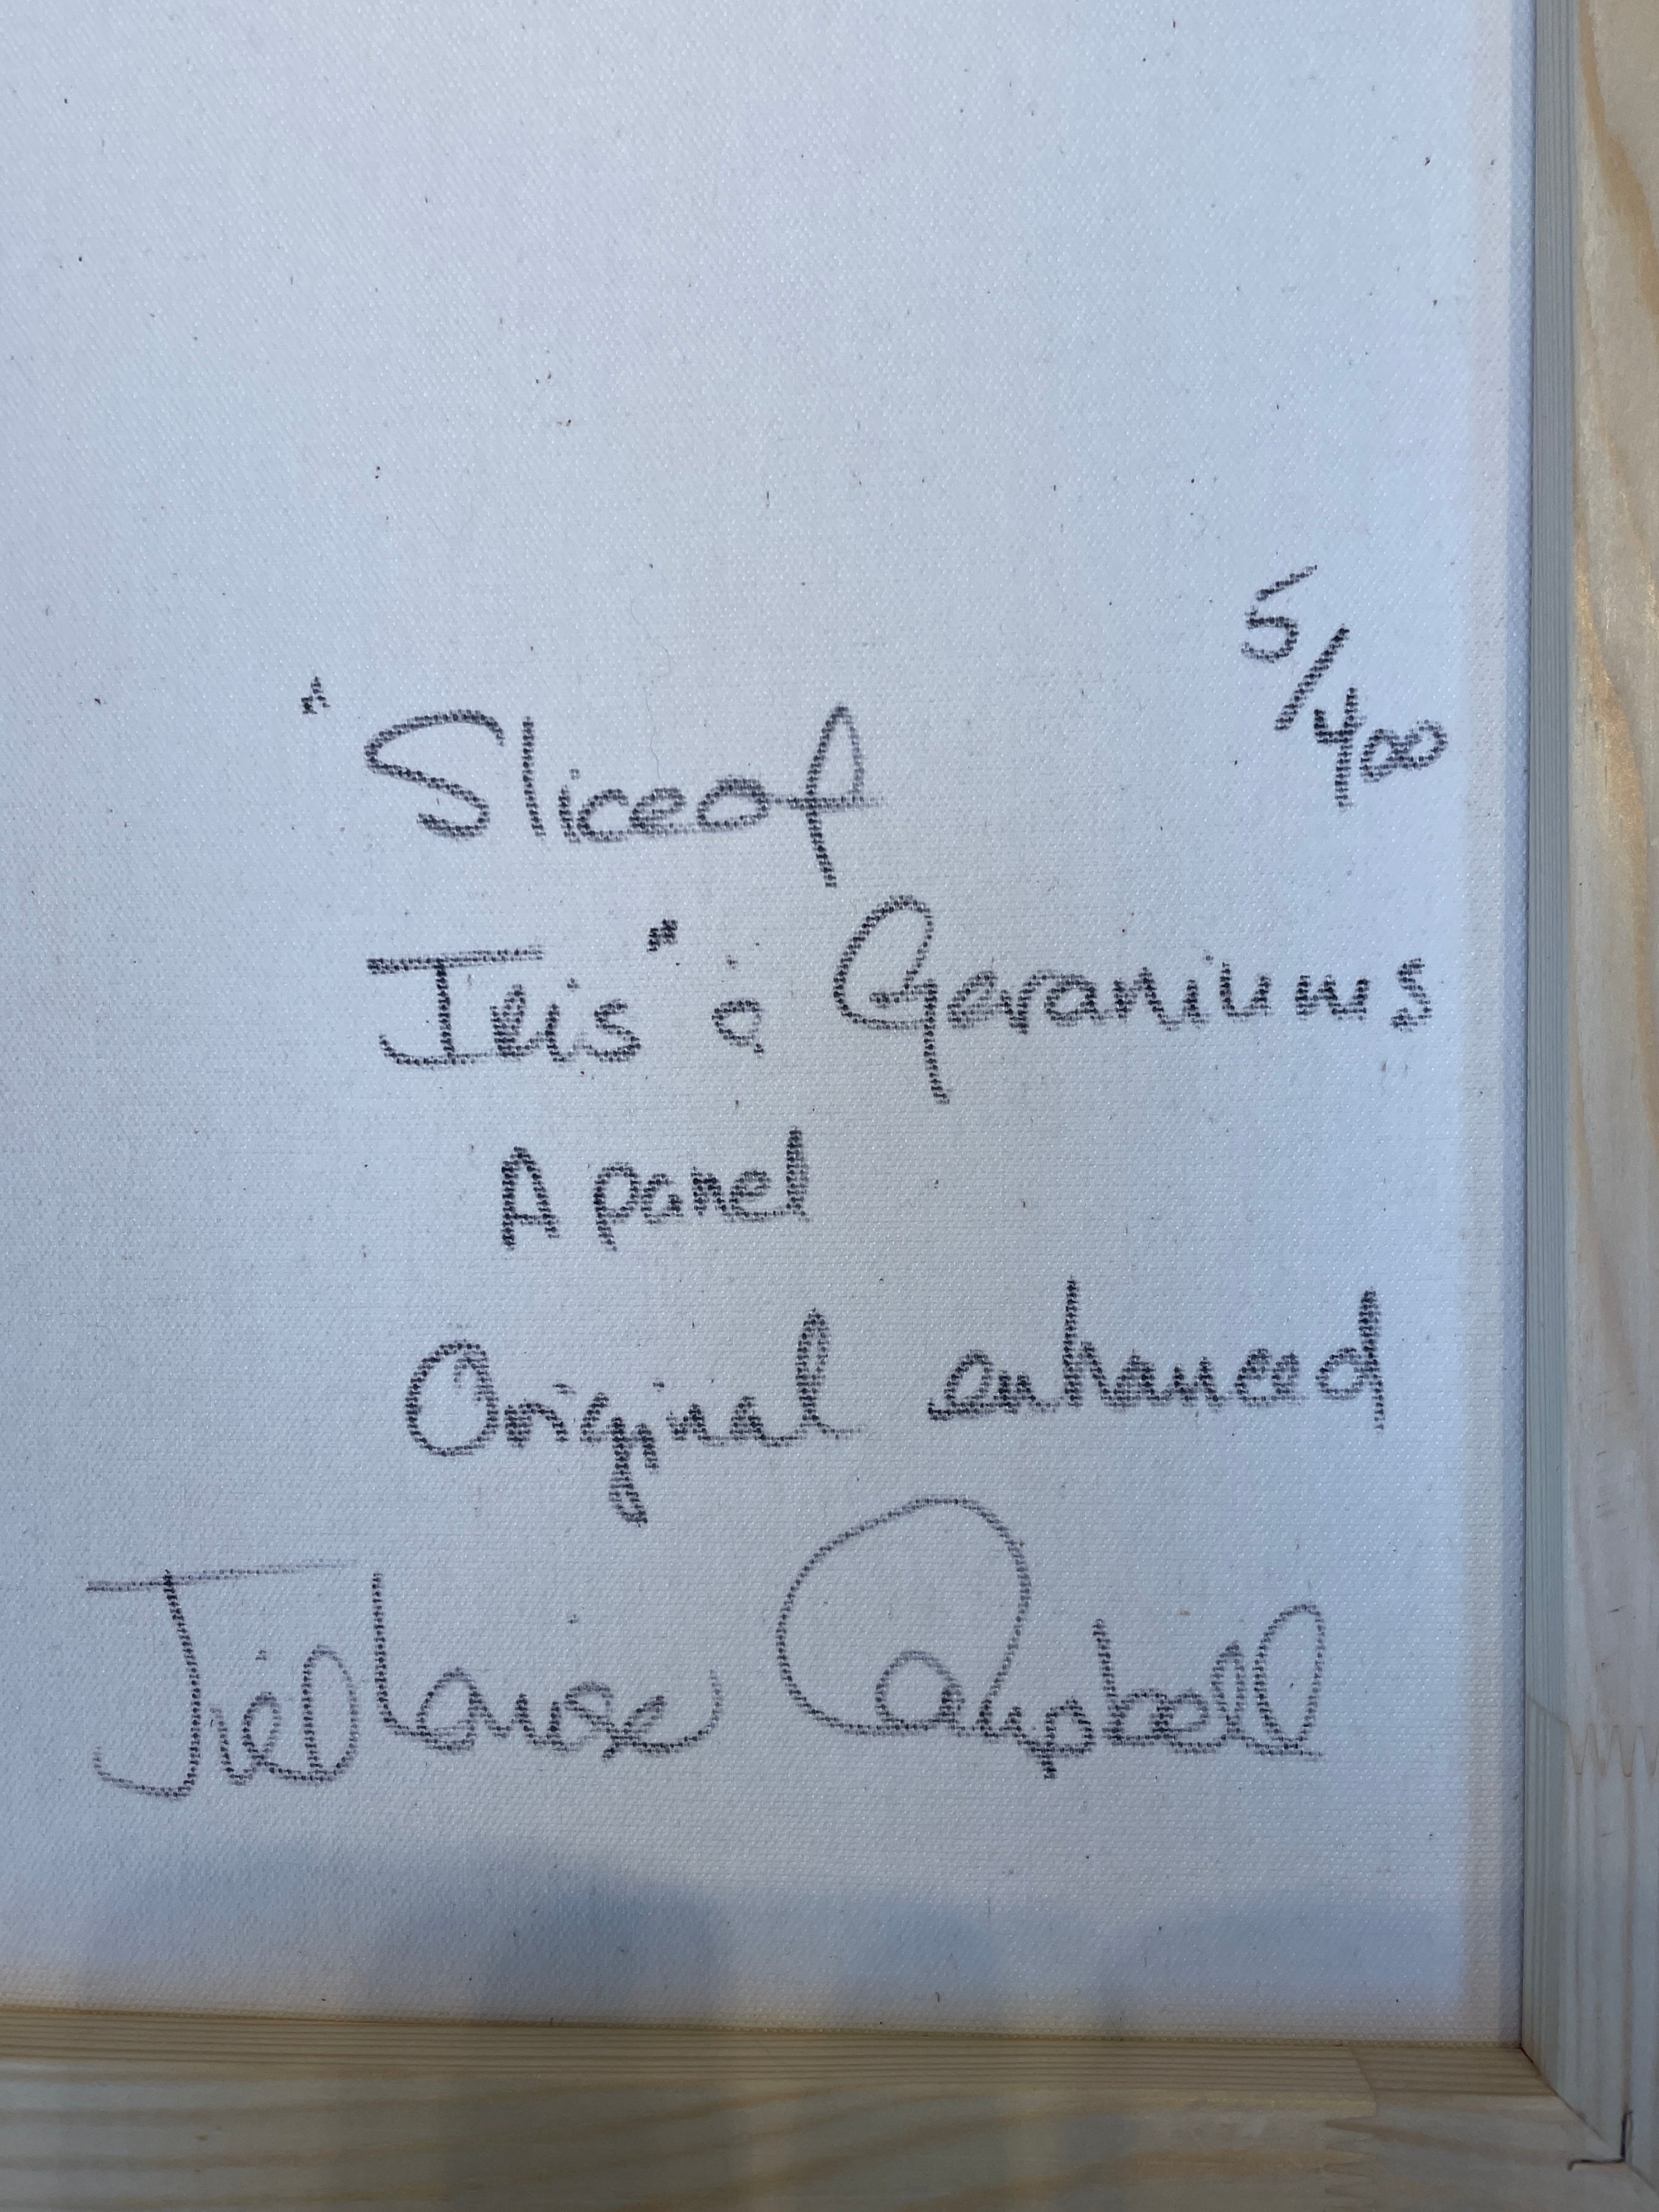 5/400
"Slice of
Iris" & Geraniums
A panel
Original enhanced
Jill Louise Campbell